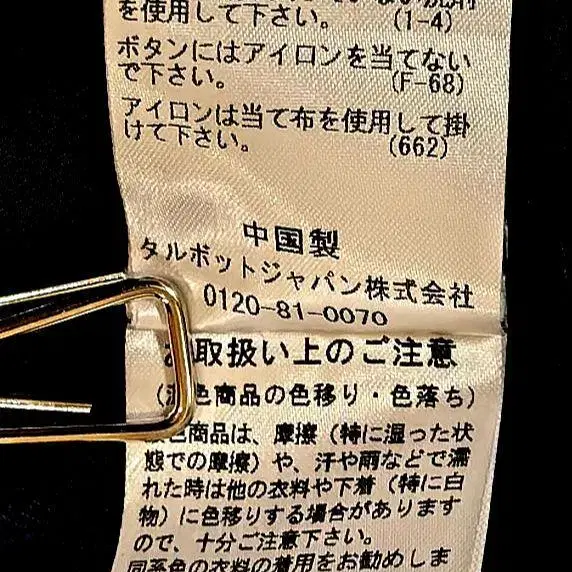 を使用して下さい。 (1-4)
ボタンにはアイロンを当てない
で下さい。 (F-68)
アイロンは当て布を使用して掛
けて下さい。 (662)
中国製
タルボットジャパン株式会社
0120-81-0070
取扱い上のご注意
色商品の色移り・色落ち)
色商品は、摩擦(特に湿った状
態での摩擦)や、汗や雨などで濡
れた時は他の衣料や下着(特に白
物)に色移りする場合があります
ので、十分ご注意下さい。
同系色の衣料の着用をお勧めしま